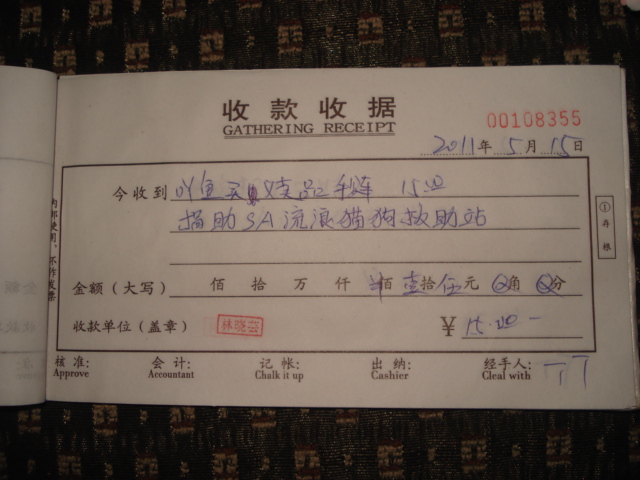 收款收据
GATHERING RECEIPT
00108355
2011年5月15日
今收到 义卖品手链 15.00
捐助SA流浪猫狗救助站
金额（大写） 佰 拾 万 仟 佰 壹拾 伍元 0角 0分
收款单位（盖章） 林晓芸 ¥ 15.00-
核准: 会计: 记帐: 出纳: 经手人: TT
Approve Accountant Chalk it up Cashier Cleal with
内部使用，不作发票
①存根